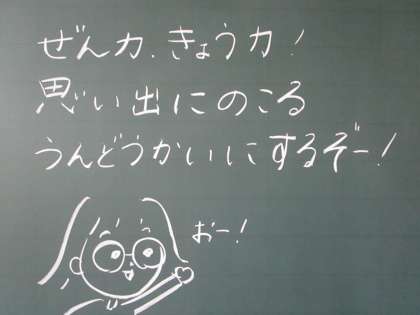 ぜん力、きょう力！
思い出にのこる
うんどうかいにするぞー！
おー！